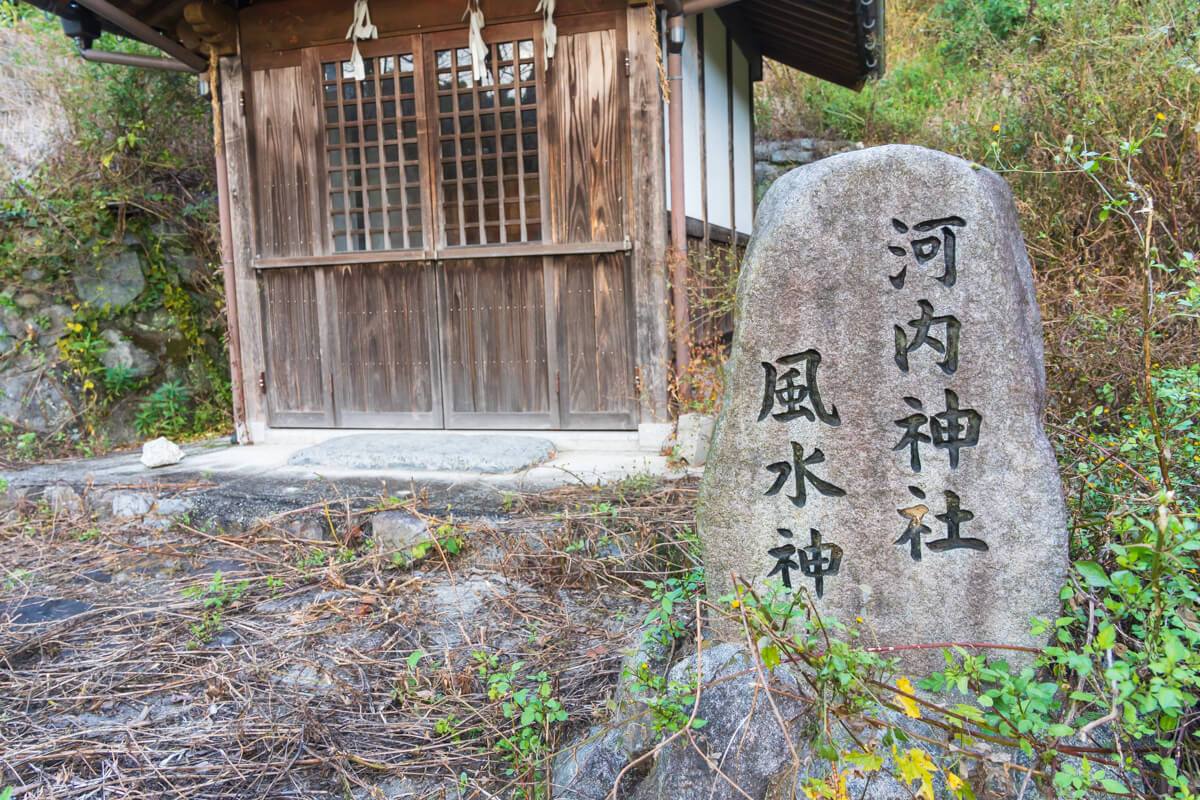 河内神社
風水神